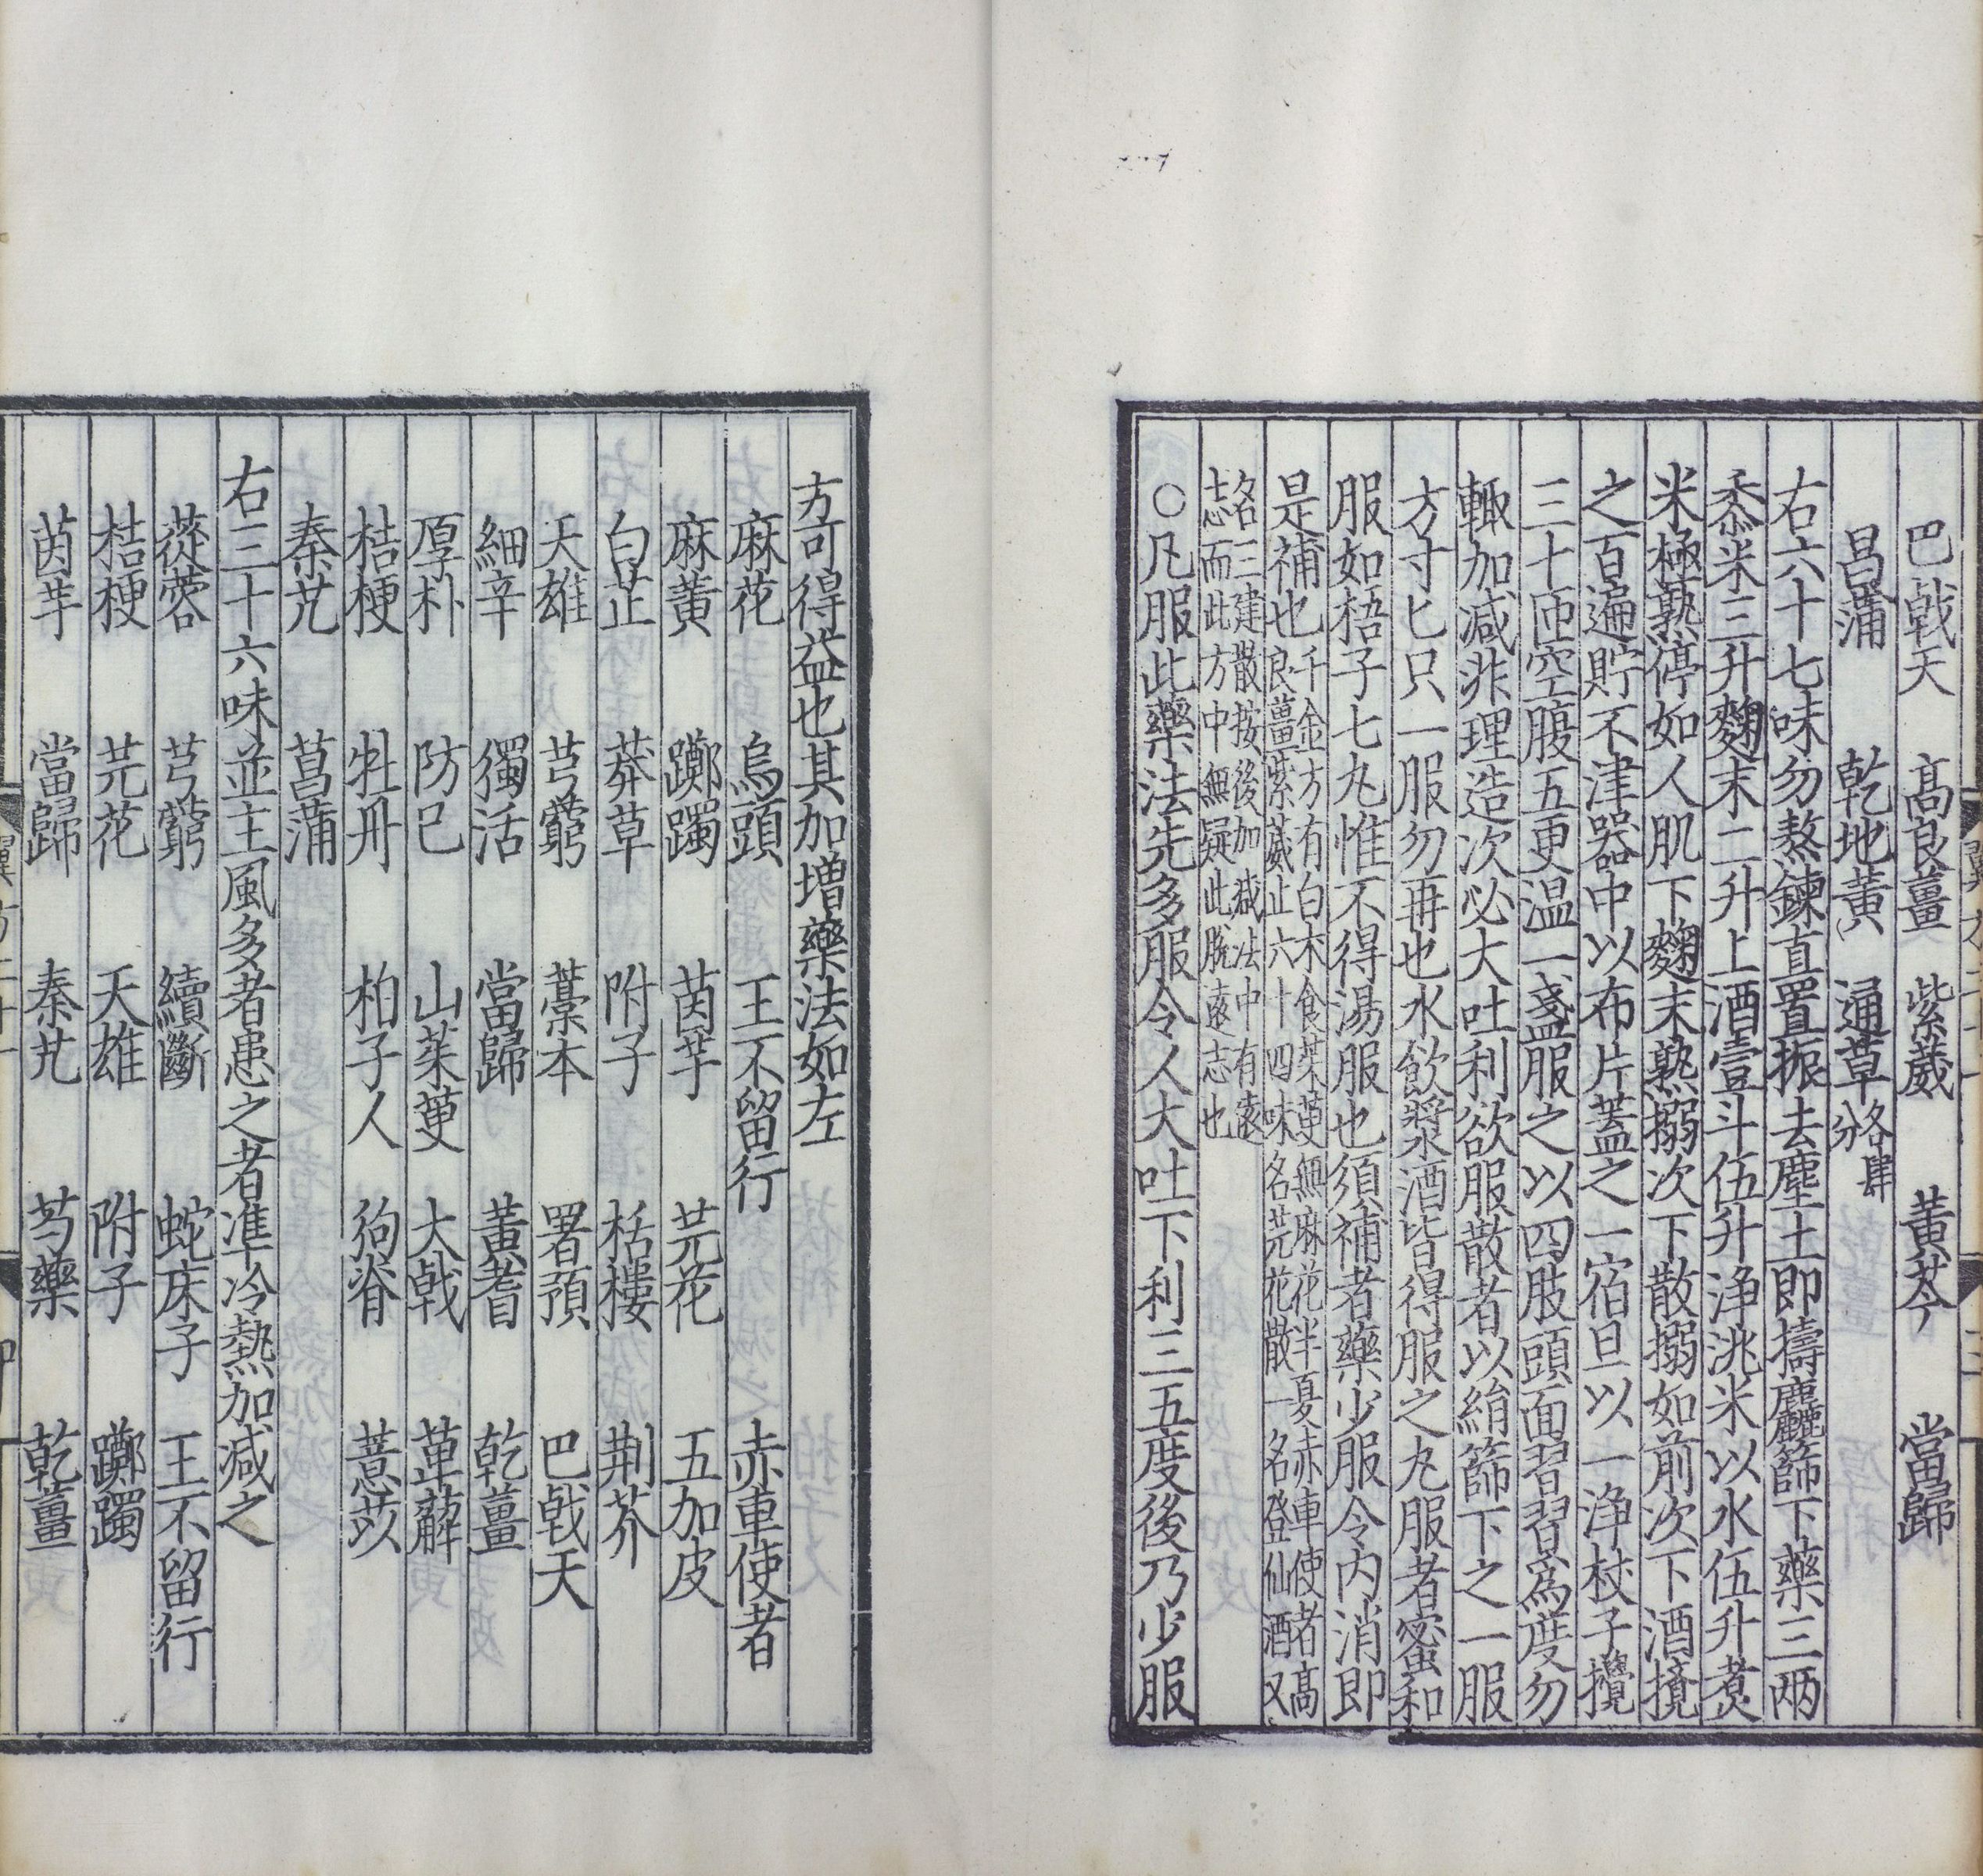 巴戟天　高良薑　紫葳　黃芩　當歸
昌蒲　乾地黃　通草各肆分
右六十七味勿熬鍊直置振去塵土即擣麤篩下藥三兩
黍米三升麴末二升上酒壹斗伍升淨洮米以水伍升煑
米極熟停如人肌下麴末熟搦次下散搦如前次下酒攪
之百遍貯不津器中以布片蓋之一宿旦以一淨杖子攪
三十匝空腹五更温一盞服之以四肢頭面習習爲度勿
輙加減非理造次必大吐利欲服散者以絹篩下之一服
方寸匕只一服勿再也水飲漿酒皆得服之丸服者蜜和
服如梧子七丸惟不得湯服也須補者藥少服令内消即
是補也千金方有白术食茱萸無麻花半夏赤車使者高
良薑紫葳止六十四味名芫花散一名登仙酒又
名三建散按後加減法中有遠
志而此方中無疑此脫遠志也
○凡服此藥法先多服令人大吐下利三五度後乃少服
方可得益也其加增藥法如左
麻花　烏頭　王不留行　赤車使者
麻黃　躑躅　茵芋　芫花　五加皮
白芷　莽草　附子　栝樓　荆芥
天雄　芎藭　藁本　署預　巴戟天
細辛　獨活　當歸　黃耆　乾薑
厚朴　防已　山茱萸　大戟　萆薢
桔梗　牡丹　柏子人　狗脊　薏苡
秦艽　菖蒲
右三十六味並主風多者患之者准冷熱加減之
蓯蓉　芎藭　續斷　蛇床子　王不留行
桔梗　芫花　天雄　附子　躑躅
茵芋　當歸　秦艽　芍藥　乾薑